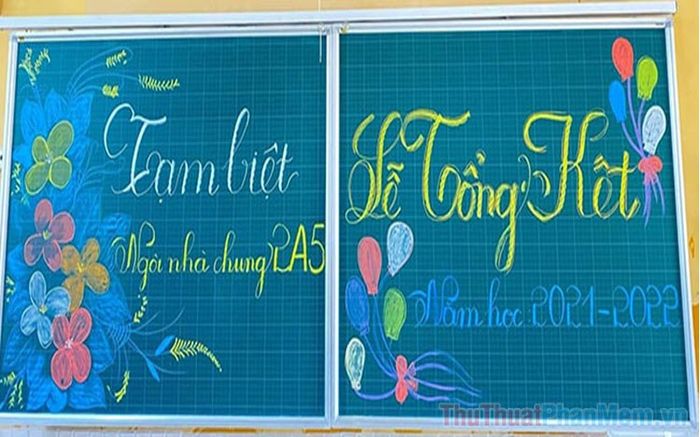 Tạm biệt
Ngôi nhà chung 2A5
Lễ Tổng Kết
Năm học: 2021-2022
ThuThuatPhanMem.vn